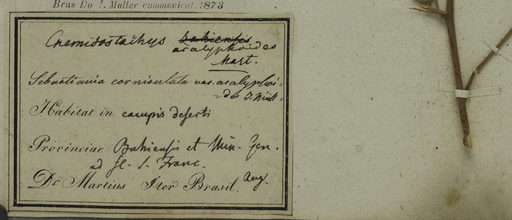 Bras Do J. Müller communicat. 1873
Cnemidostachys bahiensis
acalyphoides
Mart.
Sebastiania corniculata var. acalyphoi-
=des J. Müll.
Habitat in campis deserti
Provinciae Bahiensis et Min. Gen.
ad fl. S. Franc.
Dr Martius Iter Brasil. Aug.